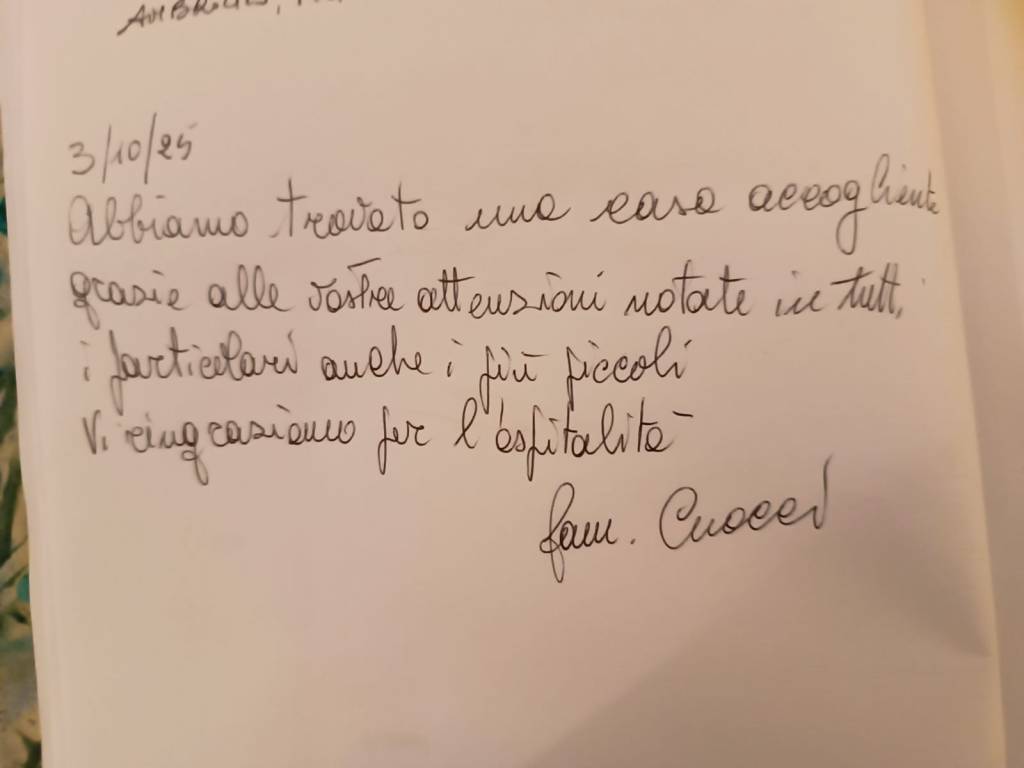 3/10/25
Abbiamo trovato una casa accogliente
grazie alle vostre attenzioni notate in tutti
i particolari anche i più piccoli
Vi ringraziamo per l'ospitalità
fam. Cuocci